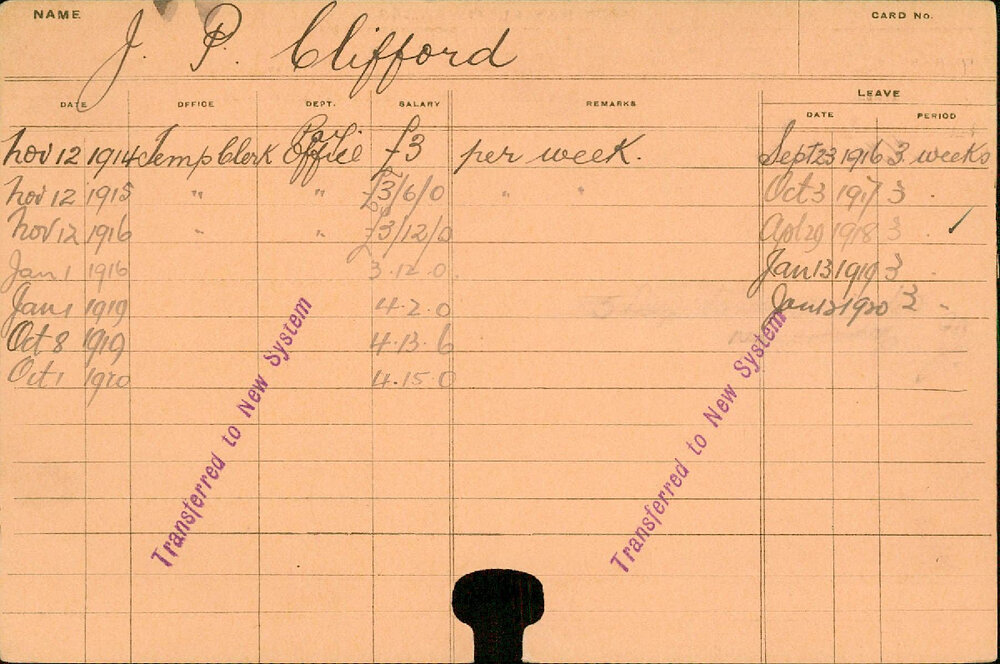 NAME CARD No.
J. P. Clifford
LEAVE
DATE OFFICE DEPT. SALARY REMARKS DATE PERIOD
Nov 12 1914 Temp Clerk Pay Office £3 per week. Sept 23 1916 3 weeks
Nov 12 1915 " " £3/6/0 " " Oct 3 1917 3 "
Nov 12 1916 " " £3/12/0 Apl 29 1918 3 " ✓
Jan 1 1916 3.12.0 Jan 13 1919 3 "
Jan 1 1919 4.2.0 Jan 12 1920 3 "
Oct 8 1919 4.13.6
Oct 1 1920 4.15.0
Transferred to New System
Transferred to New System